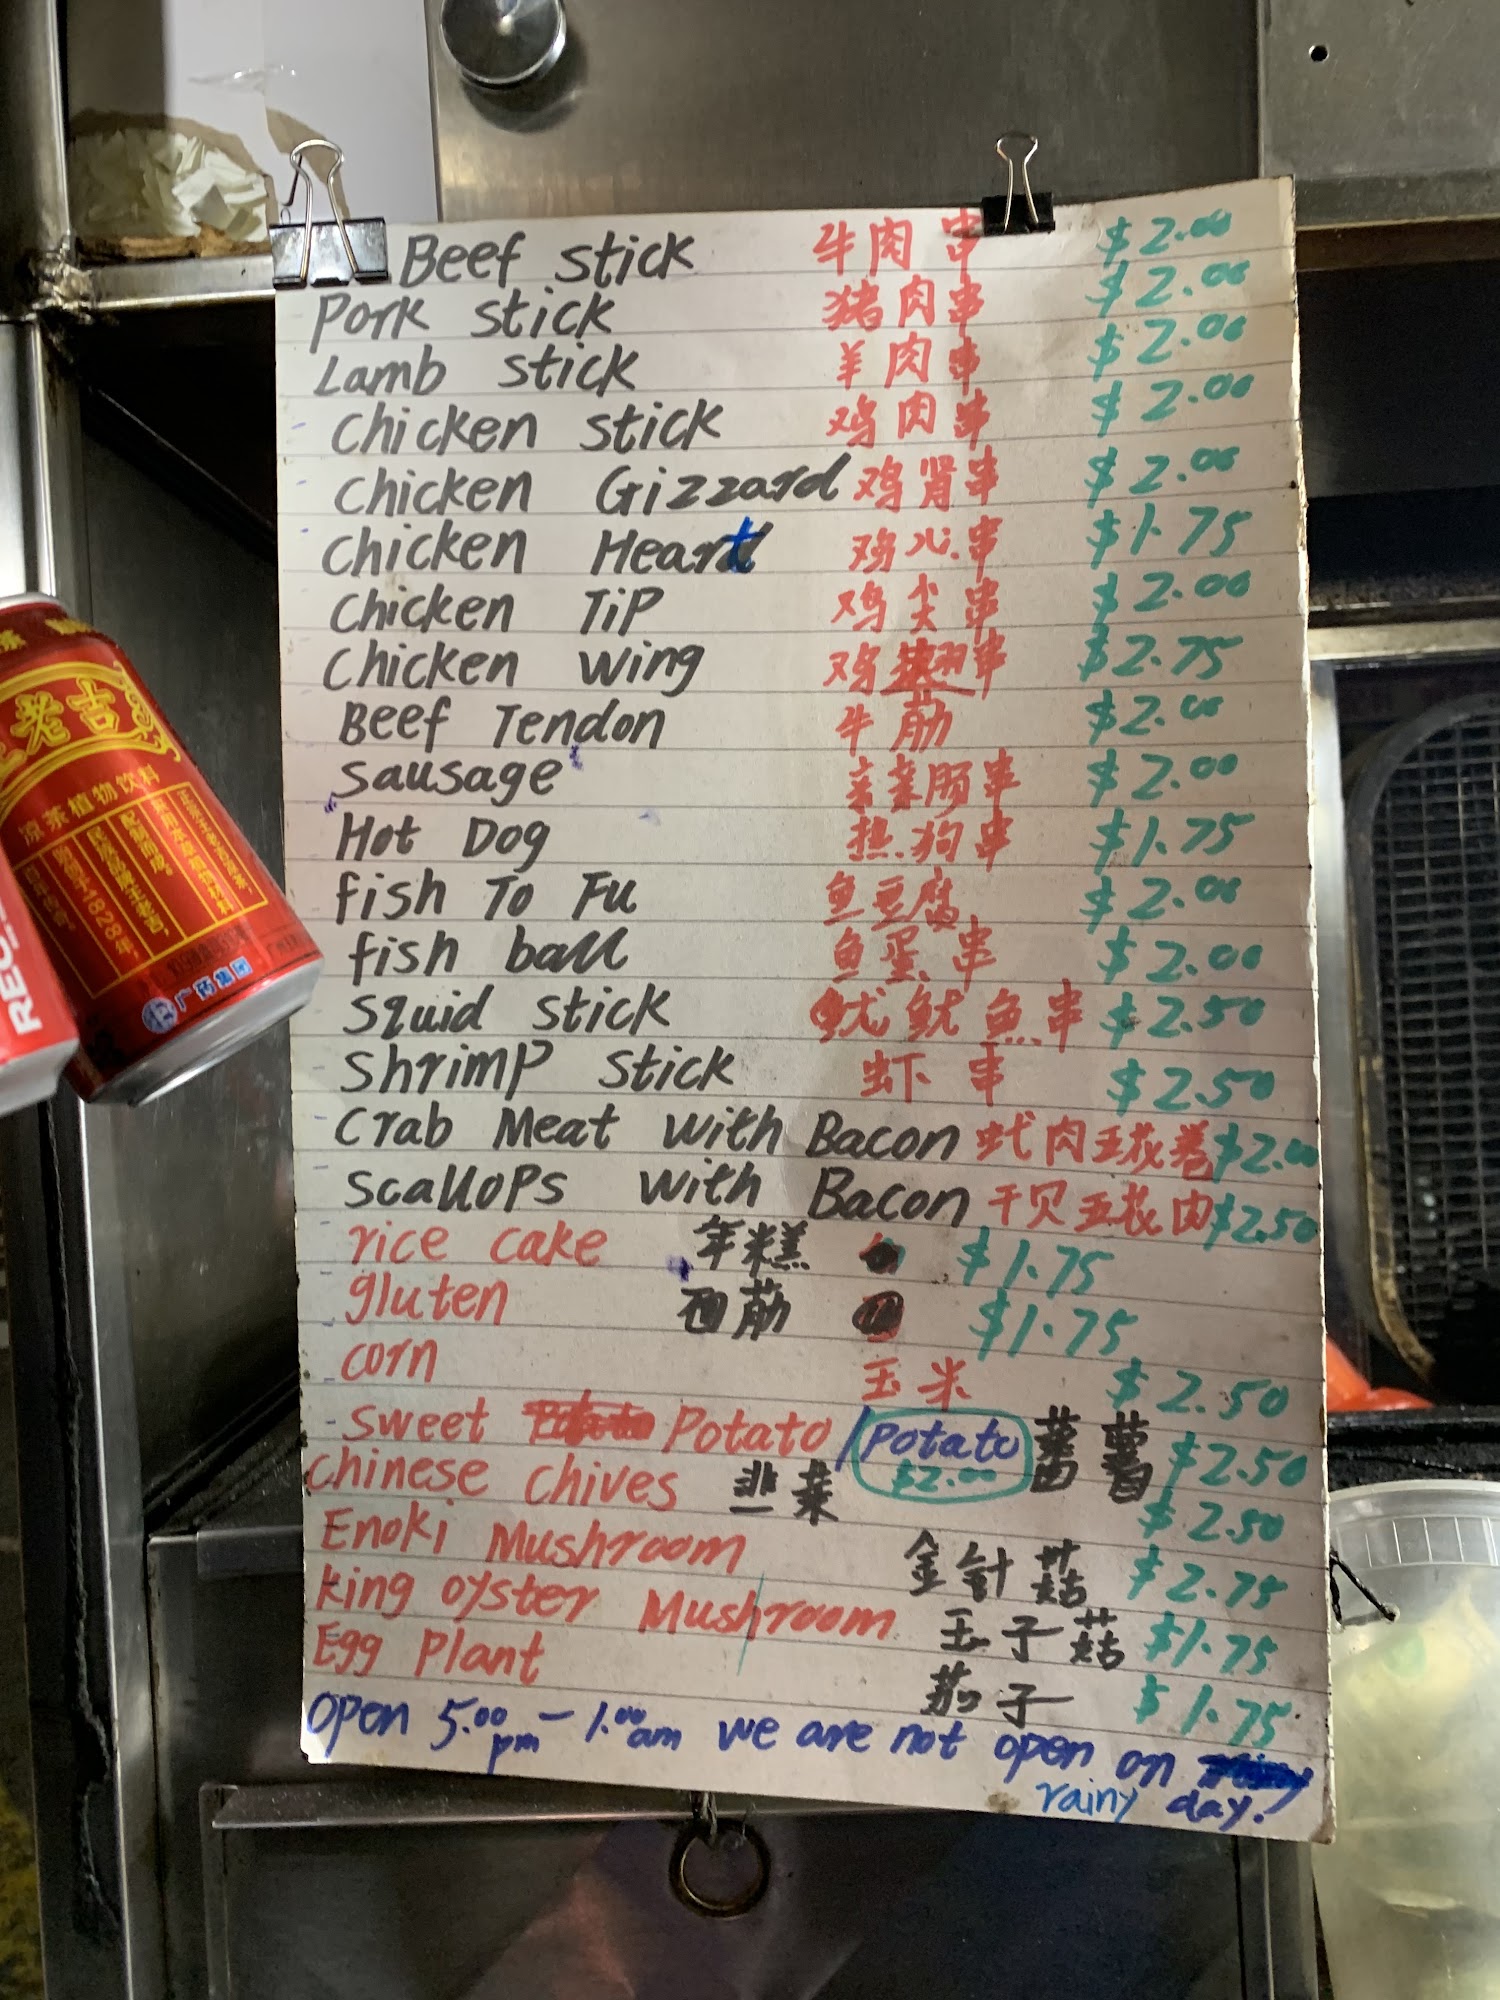 Beef stick 牛肉串 $2.00
Pork stick 猪肉串 $2.00
Lamb stick 羊肉串 $2.00
Chicken stick 鸡肉串 $2.00
Chicken Gizzard 鸡肾串 $2.00
Chicken Heart 鸡心串 $1.75
Chicken TiP 鸡尖串 $2.00
Chicken wing 鸡翅串 $2.75
Beef Tendon 牛筋 $2.00
Sausage 亲亲肠串 $2.00
Hot Dog 热狗串 $1.75
fish To Fu 鱼豆腐 $2.00
fish ball 鱼蛋串 $2.00
Squid stick 鱿鱼串 $2.50
Shrimp stick 虾串 $2.50
Crab Meat with Bacon 肉五花卷 $2.00
Scallops with Bacon 干贝五花肉 $2.50
rice cake 年糕 $1.75
gluten 面筋 $1.75
corn 玉米 $2.50
Sweet Potato / Potato $2.00 蕃薯 $2.50
Chinese Chives 韭菜 $2.50
Enoki Mushroom 金针菇 $2.75
king oyster Mushroom 玉子菇 $1.75
Egg Plant 茄子 $1.75
Open 5.00 pm - 1.00 am we are not open on
rainy day.
老吉
凉茶植物饮料
1828年
广药集团
REC